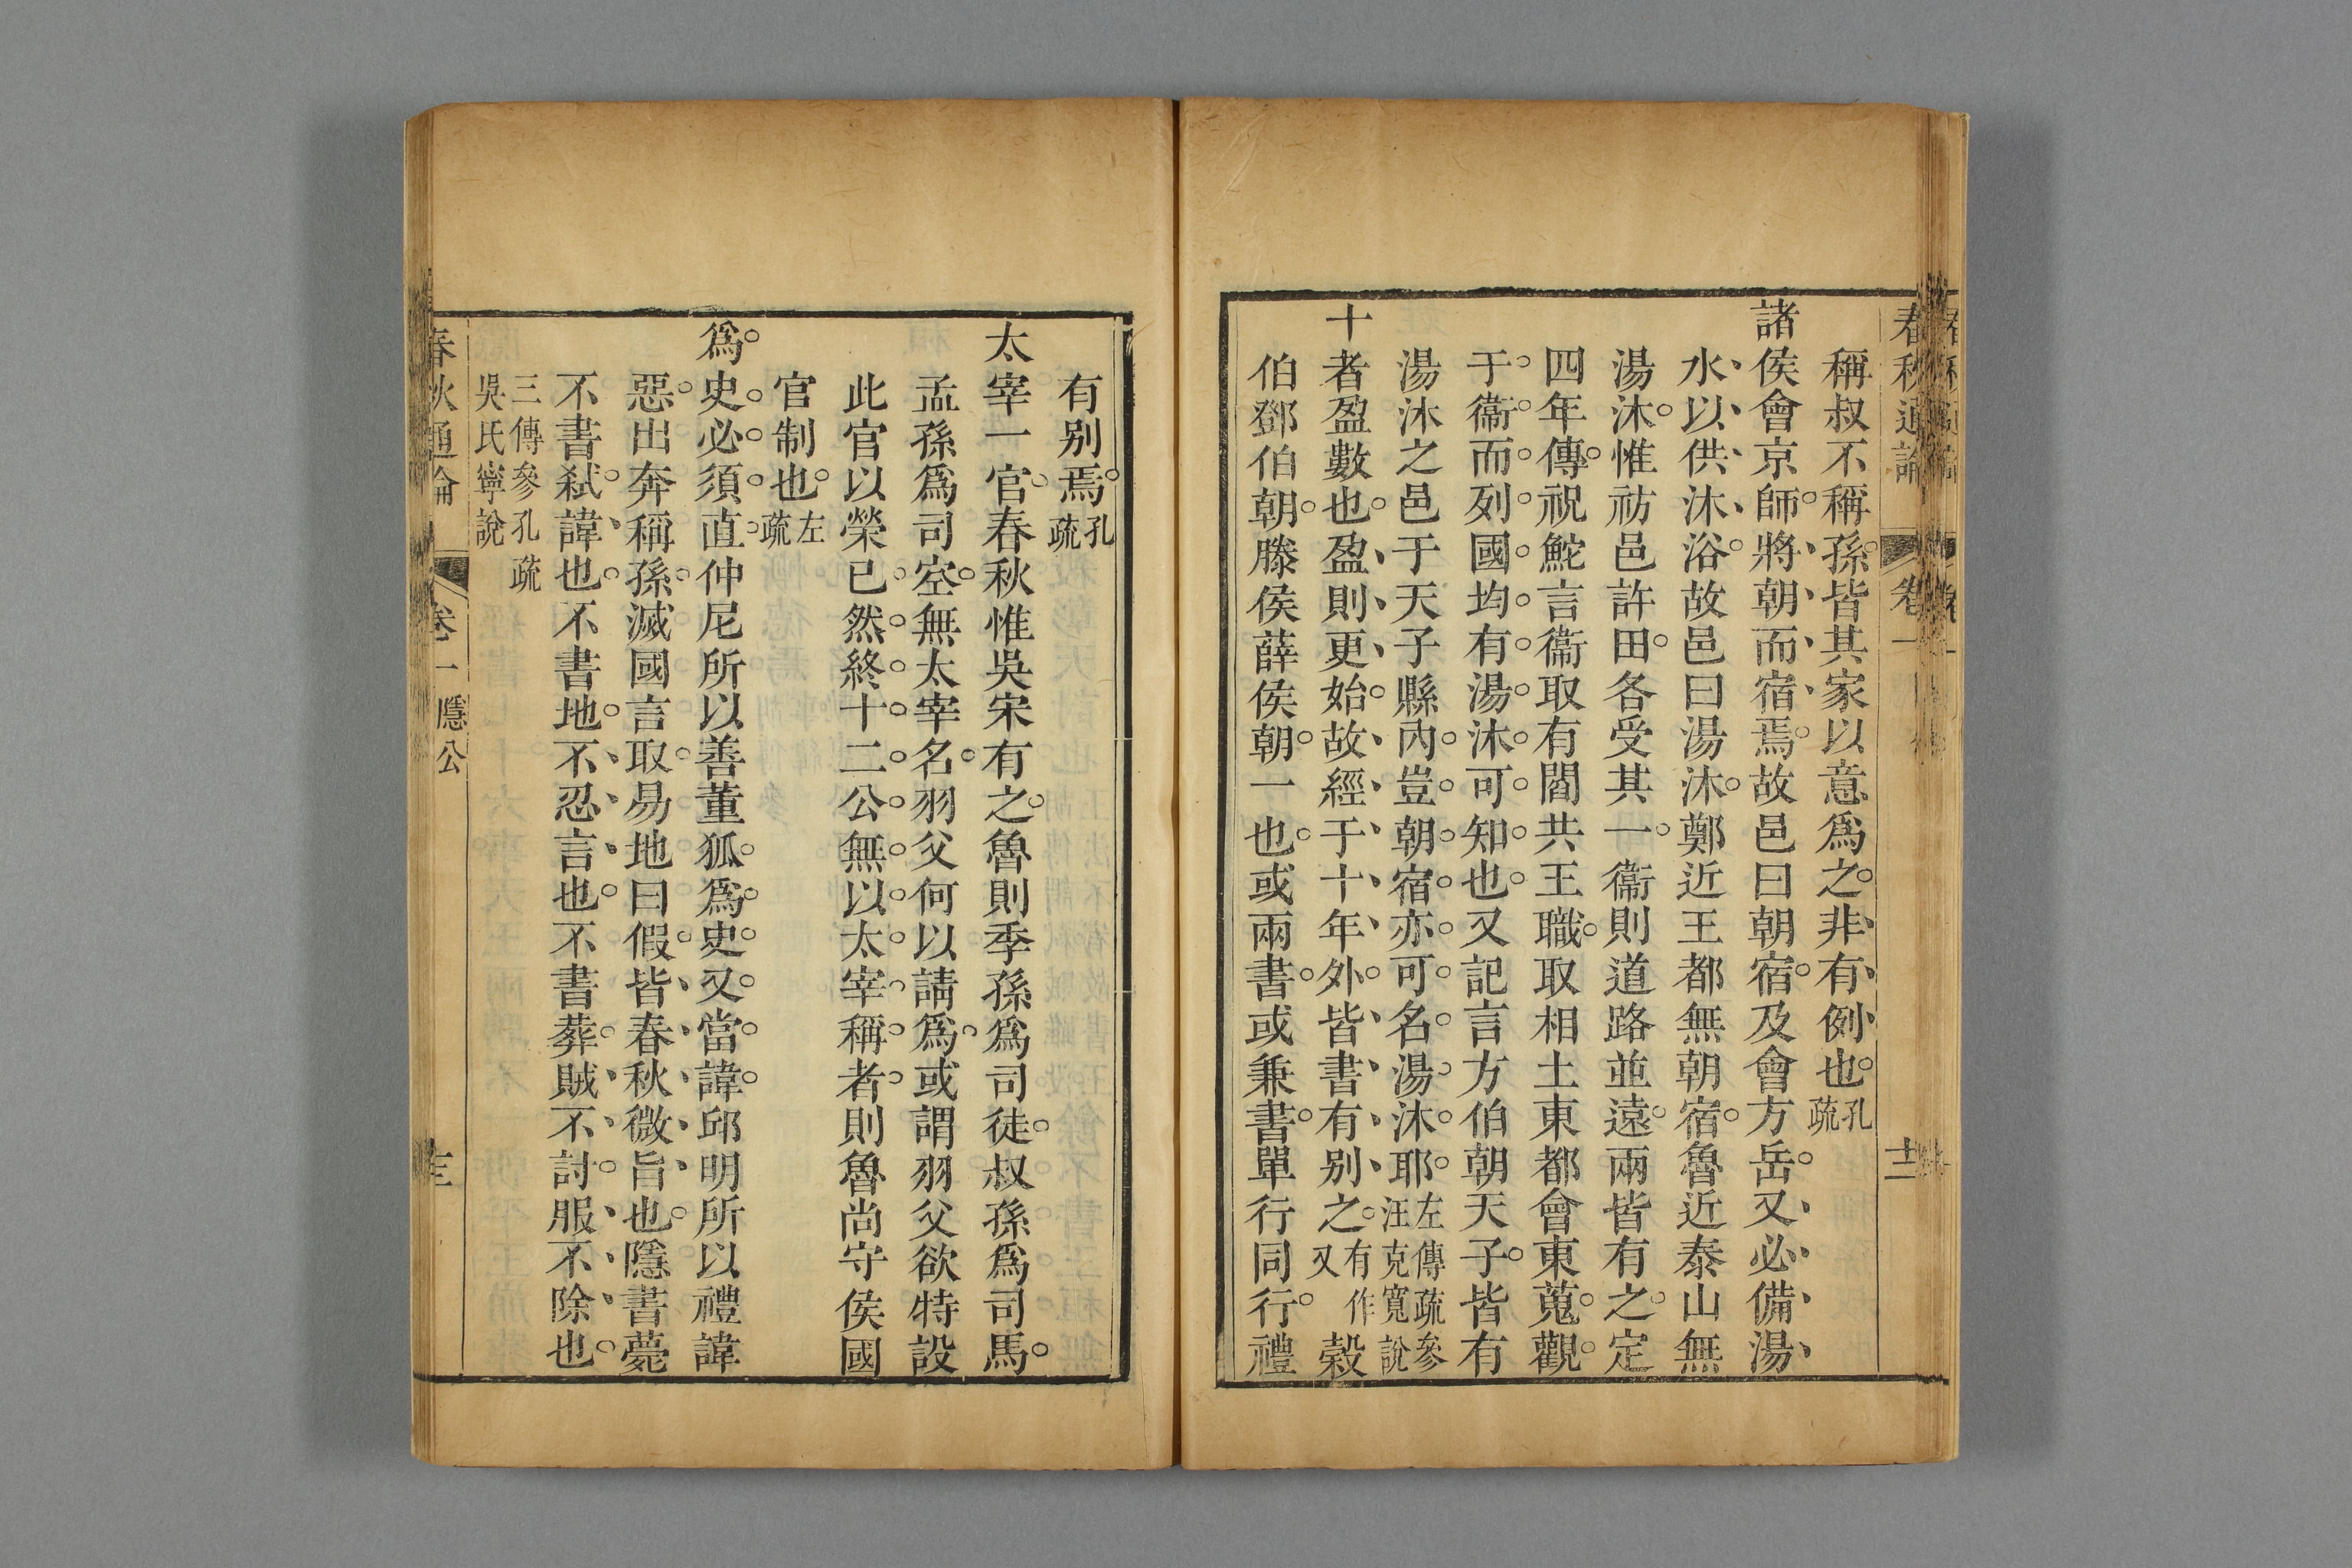 春秋通論 卷一 十二
稱叔不稱孫皆其家以意爲之非有例也孔疏
諸侯會京師將朝而宿焉故邑曰朝宿及會方岳又必備湯
水以供沐浴故邑曰湯沐鄭近王都無朝宿魯近泰山無
湯沐惟祊邑許田各受其一衞則道路並遠兩皆有之定
四年傳祝鮀言衞取有閻共王職取相土東都會東蒐觀
于衞而列國均有湯沐可知也又記言方伯朝天子皆有
湯沐之邑于天子縣內豈朝宿亦可名湯沐耶左傳疏參汪克寬說
十者盈數也盈則更始故經于十年外皆書有别之有作又穀
伯鄧伯朝滕侯薛侯朝一也或兩書或兼書單行同行禮
有别焉孔疏
太宰一官春秋惟吳宋有之魯則季孫爲司徒叔孫爲司馬
孟孫爲司空無太宰名羽父何以請爲或謂羽父欲特設
此官以榮已然終十二公無以太宰稱者則魯尚守侯國
官制也左疏
爲史必須直仲尼所以善董狐爲史又當諱邱明所以禮諱
惡出奔稱孫滅國言取易地曰假皆春秋微旨也隱書薨
不書弑諱也不書地不忍言也不書葬賊不討服不除也
三傳參孔疏吳氏寧說
春秋通論 卷一 隱公 十三